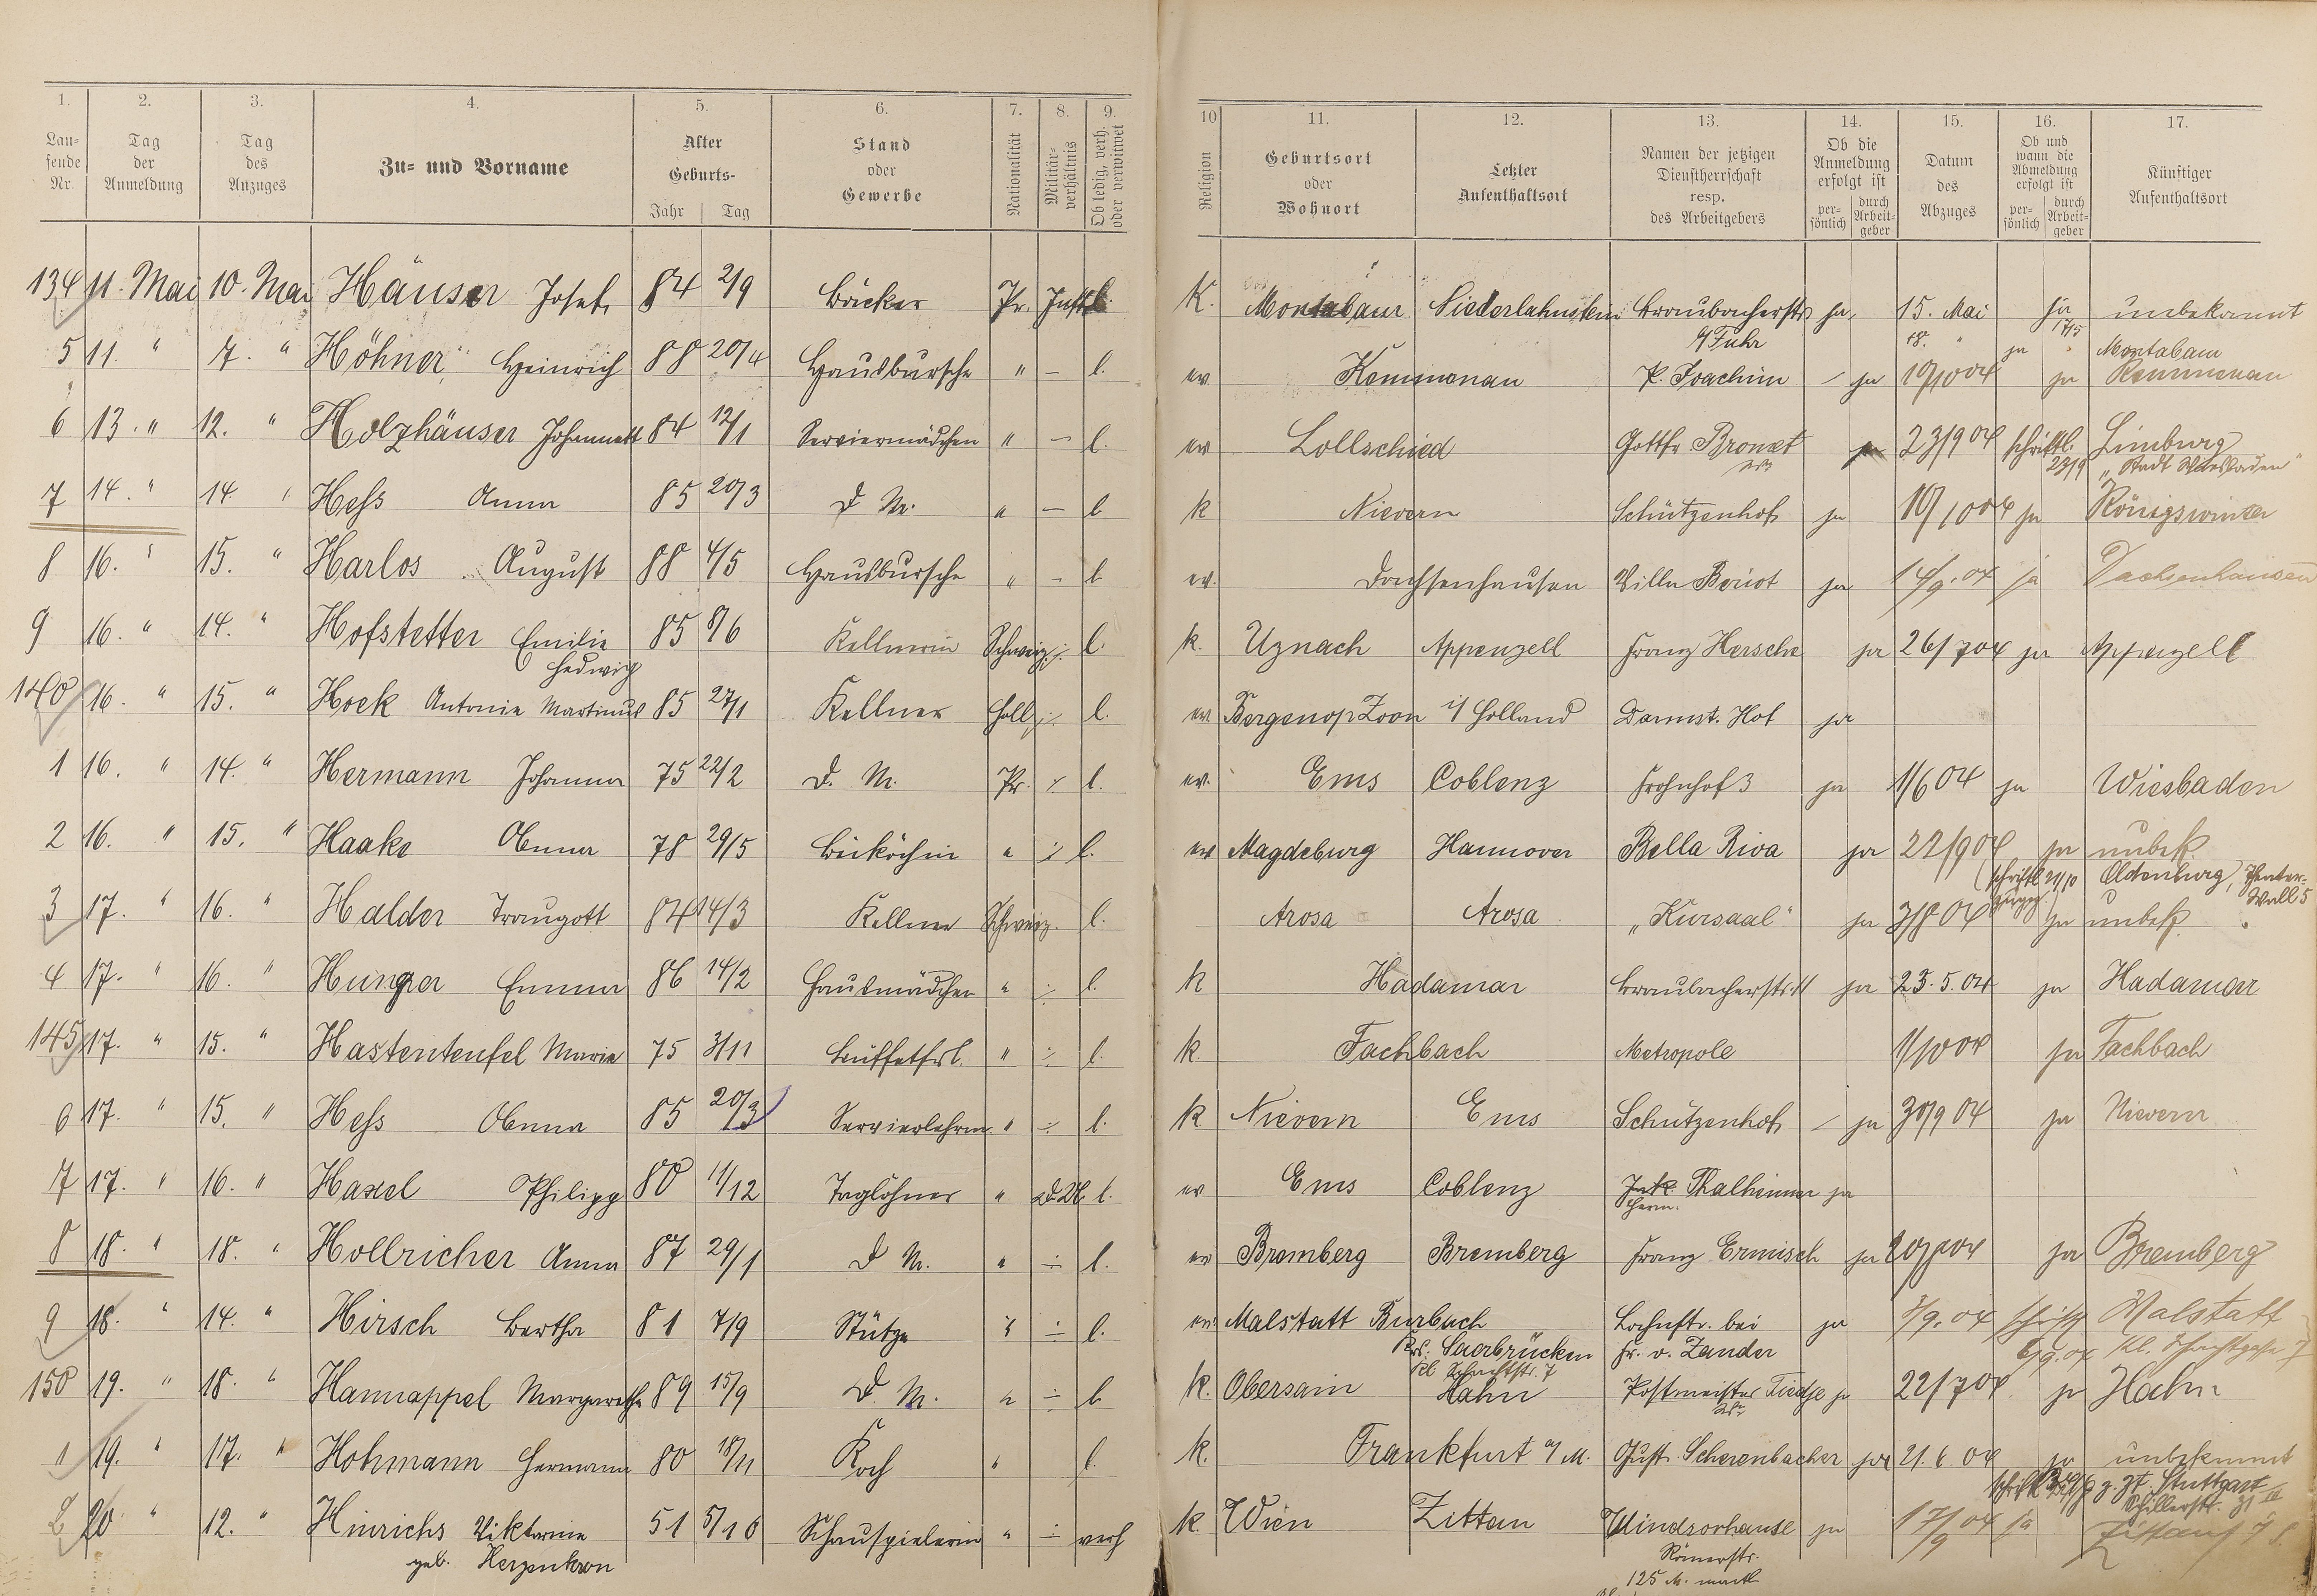 1. 2. 3. 4. 5. 6. 7. 8. 9.
Lau-fende Nr. Tag der Anmeldung Tag des Anzuges Zu- und Vorname Alter Geburts- Jahr Tag Stand oder Gewerbe Nationalität Militär-verhältnis Ob ledig, verh. oder verwitwet
10 11. 12. 13. 14. 15. 16. 17.
Religion Geburtsort oder Wohnort Letzter Aufenthaltsort Namen der jetzigen Dienstherrschaft resp. des Arbeitgebers Ob die Anmeldung erfolgt ist per-sönlich durch Arbeit-geber Datum des Abzuges Ob und wann die Abmeldung erfolgt ist per-sönlich durch Arbeit-geber Künftiger Aufenthaltsort
134 11. Mai 10. Mai Häuser Josef 84 2/9 Bäcker Pr. K. Montabaur Niederlahnstein Braubacherstr. ja 15. Mai ja unbekannt
17/5
a/ Fuhr 18. " ja Montabaur
5 11. " 7. " Höhner Heinrich 88 20/4 Hausbursche " – l. ev. Kemmenau P. Joachim – ja 19/10 04 ja Kemmenau
6 13. " 12. " Holzhäuser Johannett 84 12/1 Serviermädchen " – l. ev Lollschied Gottfr. 23/9 04 schriftl. Limburg
23/9 "Stadt Wiesbaden"
7 14. " 14. " Heß Anna 85 20/3 D. M. " – l. k Nievern Schützenhof ja 10/10 04 ja Königswinter
8 16. " 15. " Harlos August 88 4/5 Hausbursche " – l. ev. Dachsenhausen Villa Beriot ja 14/9. 04 ja Dachsenhausen
9 16. " 14. " Hofstetter Emilie 85 8/6 Kellnerin Schweiz ÷ l. k. Uznach Appenzell Franz Hersche ja 26/7 04 ja Appenzell
Hedwig
140 16. " 15. " Hoek Antonie Martinus 85 27/1 Kellner Holl. ÷ l. ev. Bergen op Zoon i/ Holland Darmst. Hof ja
1 16. " 14. " Hermann Johanna 75 22/2 D. M. Pr. ÷ l. ev. Ems Coblenz Frohnhof 3 ja 1/6 04 ja Wiesbaden
2 16. " 15. " Haake Anna 78 29/5 Beiköchin " ÷ l. ev Magdeburg Hannover Bella Riva ja 22/9 04 ja unbek.
schriftl. 21/10 Oldenburg, Theater-
Wall 5
3 17. " 16. " Halder Traugott 84 14/3 Kellner Schweiz. l. Arosa Arosa "Kursaal" ja 3/8 04 ja unbek.
4 17. " 16. " Hunger Emma 86 14/2 Hausmädchen " ÷ l. k Hadamar Braubacherstr. 11 ja 23. 5. 04 ja Hadamar
145 17. " 15. " Hastenteufel Marie 75 3/11 Buffetfrl. " ÷ l. k. Fachbach Metropole 1/10 04 ja Fachbach
6 17. " 15. " Heß Anna 85 20/3 Servierlehrm. " ÷ l. k Nievern Ems Schützenhof – ja 30/9 04 ja Nievern
7 17. " 16. " Haxel Philipp 80 11/12 Taglöhner " l. ev Ems Coblenz Jak. Thalheimer ja
Herm.
8 18. " 18. " Hollricher Anna 87 29/1 D. M. " ÷ l. ev Bremberg Bremberg Franz Ermisch ja ja Bremberg
9 18. " 14. " Hirsch Bertha 81 7/9 Stütze " ÷ l. ev. Malstatt Burbach Bahnstr. bei ja 3/9. 04 schriftl. Malstatt
Krs. Saarbrücken Fr. v. Zander 6/9. 04
150 19. " 18. " Hannappel Margarethe 89 15/9 D. M. " ÷ l. k. Obersain Hahn Postmeister Tiedje ja 22/7 04 ja Hahn
1 19. " 17. " Hohmann Hermann 80 18/11 Koch " l. k. Frankfurt a/M. Gust. Scherenbacher ja 21. 6. 04 ja unbekannt
z. Zt. Stuttgart
Schillerstr.
2 20 " 12. " Hinrichs Viktorine 51 5/10 Schauspielerin " ÷ verh k. Wien Zittau Windsorhause ja 17/9 04 ja Zittau
geb. Herzenkron Römerstr.
125 M.